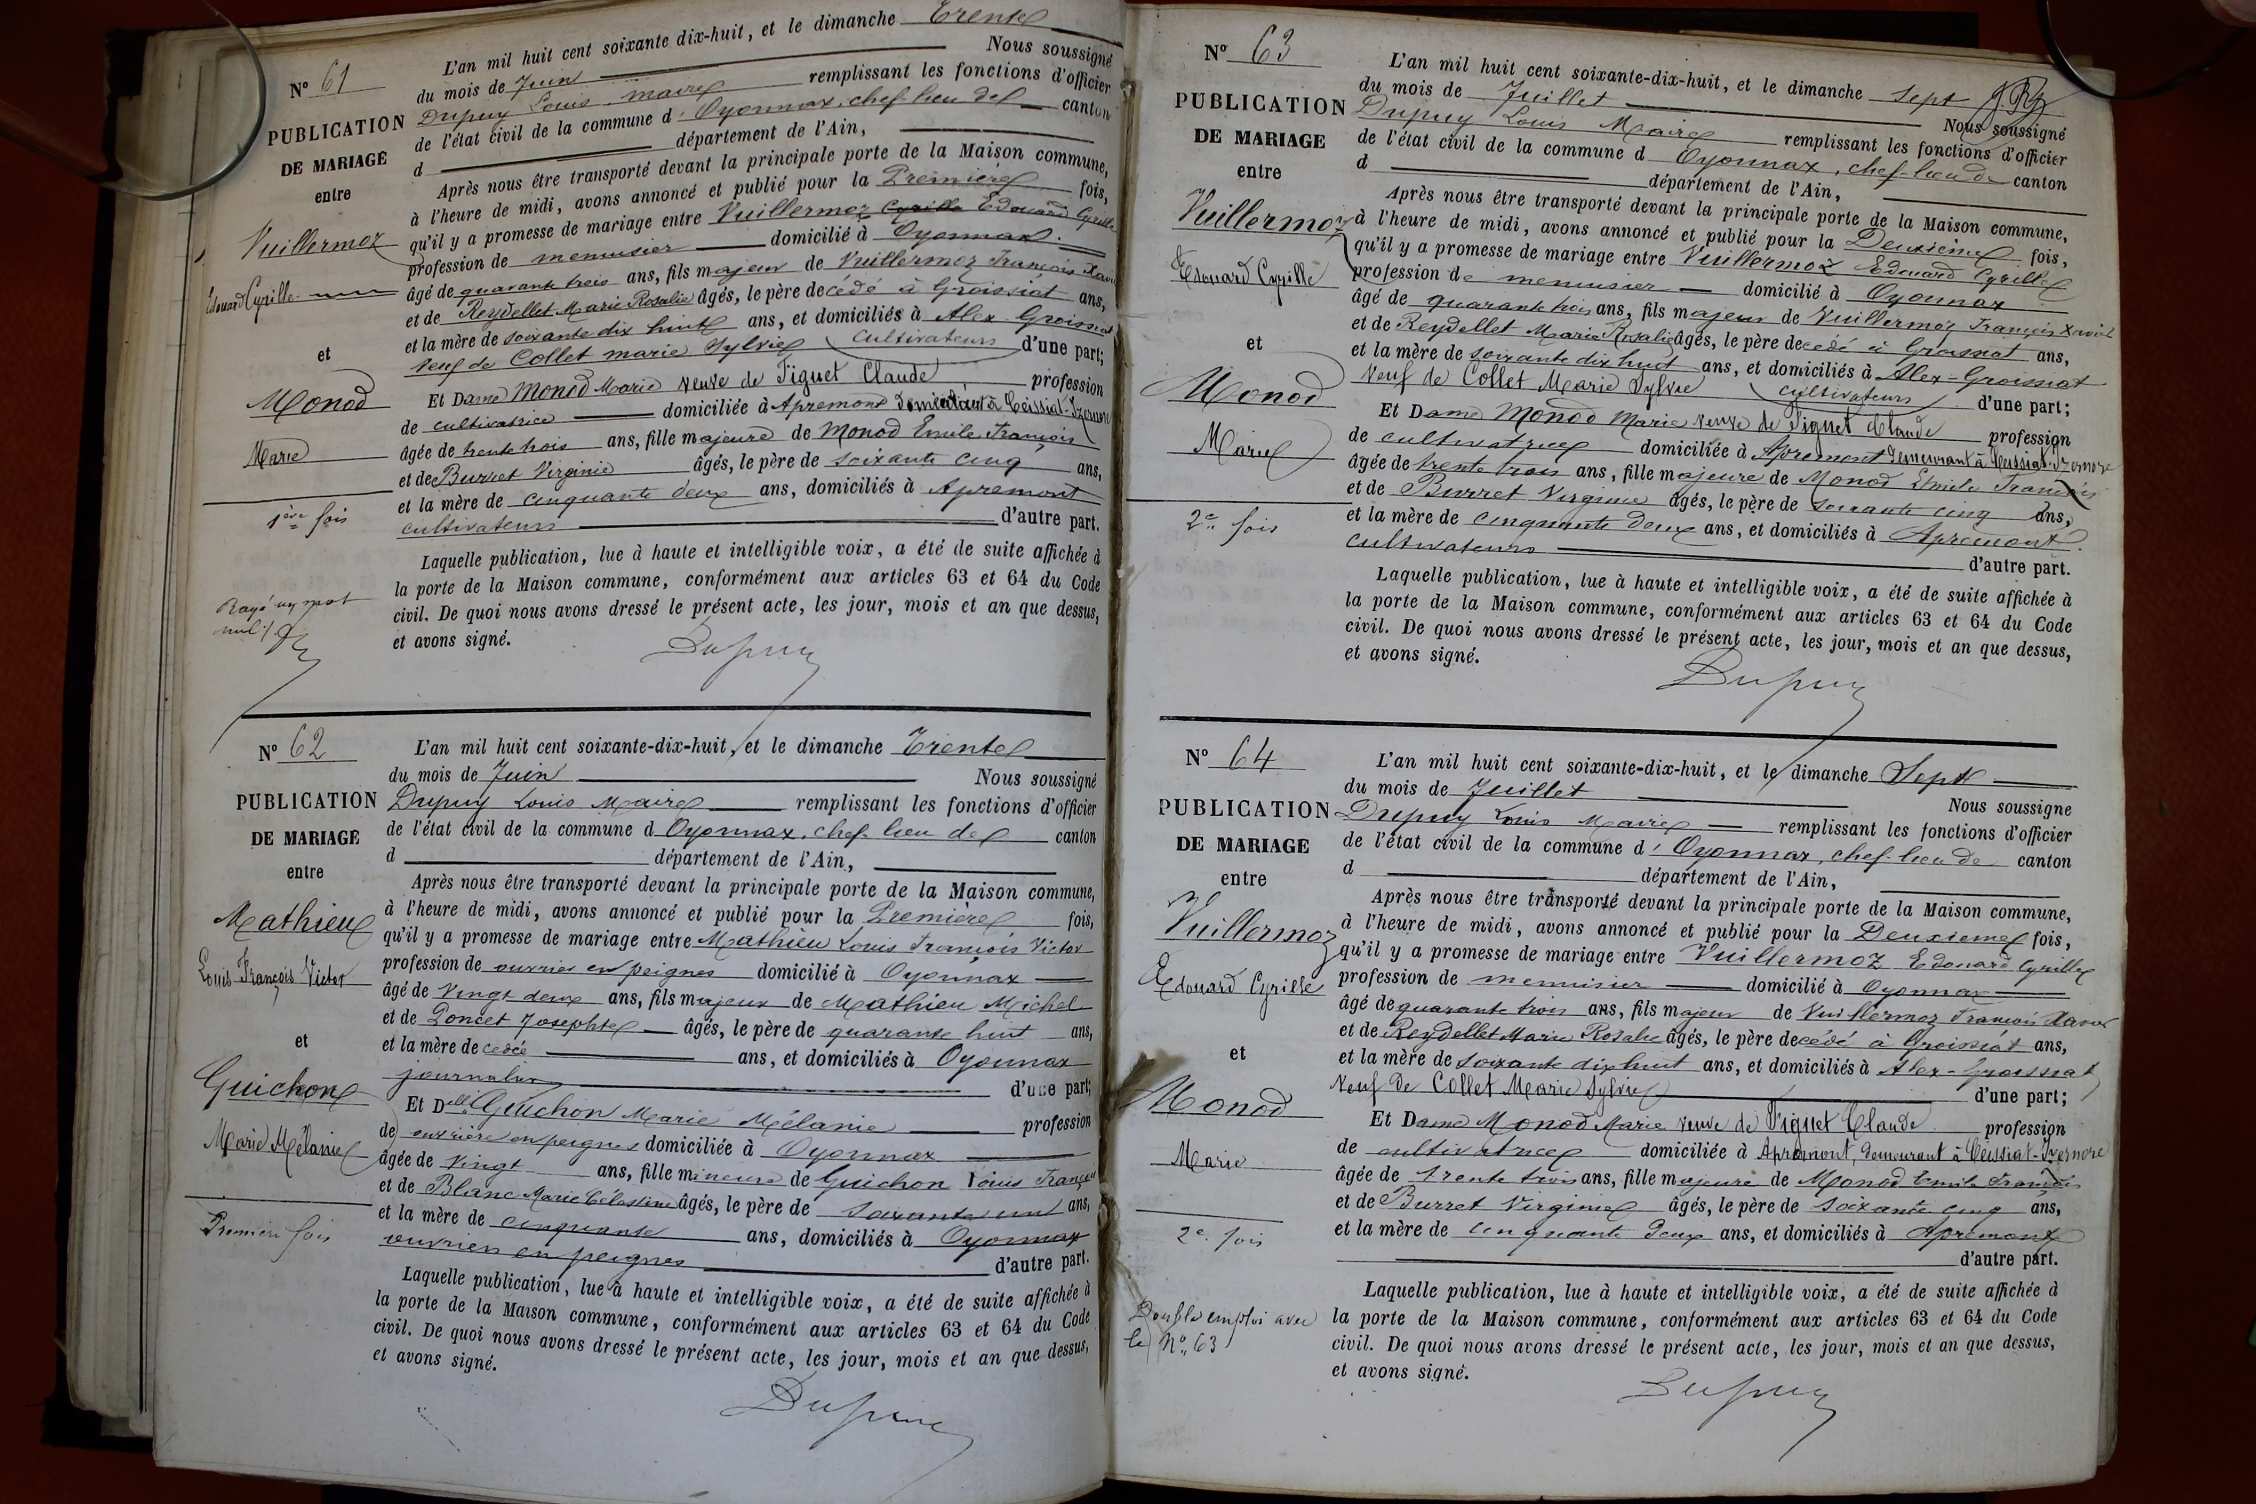 N° 61
PUBLICATION
DE MARIAGE
entre
Vuillermoz
Edouard Cyrille
et
Monod
Marie
1ère fois
Rayé un mot
nul
L'an mil huit cent soixante dix-huit, et le dimanche Trente
du mois de Juin Nous soussigné
Dupuy Louis maire remplissant les fonctions d'officier
de l'état civil de la commune d'Oyonnax, chef-lieu de canton
d département de l'Ain,
Après nous être transporté devant la principale porte de la Maison commune,
à l'heure de midi, avons annoncé et publié pour la Première fois,
qu'il y a promesse de mariage entre Vuillermoz Cyrille Edouard Cyrille
profession de menuisier domicilié à Oyonnax
âgé de quarante trois ans, fils majeur de Vuillermoz François Xavier
et de Reydellet Marie Rosalie âgés, le père décédé à Groissiat ans,
et la mère de soixante dix huit ans, et domiciliés à Alex-Groissiat
Veuf de Collet marie Sylvie cultivateurs d'une part;
Et Dame Monod Marie veuve de Piguet Claude profession
de cultivatrice domiciliée à Apremont demeurant à Ceissiat-Izernore
âgée de trente trois ans, fille majeure de Monod Emile François
et de Burret Virginie âgés, le père de soixante cinq ans,
et la mère de cinquante deux ans, domiciliés à Apremont
cultivateurs d'autre part.
Laquelle publication, lue à haute et intelligible voix, a été de suite affichée à
la porte de la Maison commune, conformément aux articles 63 et 64 du Code
civil. De quoi nous avons dressé le présent acte, les jour, mois et an que dessus,
et avons signé.
Dupuy
N° 62
PUBLICATION
DE MARIAGE
entre
Mathieu
Louis François Victor
et
Guichon
Marie Mélanie
Première fois
L'an mil huit cent soixante-dix-huit, et le dimanche Trente
du mois de Juin Nous soussigné
Dupuy Louis Maire remplissant les fonctions d'officier
de l'état civil de la commune d Oyonnax, chef-lieu de canton
d département de l'Ain,
Après nous être transporté devant la principale porte de la Maison commune,
à l'heure de midi, avons annoncé et publié pour la Première fois,
qu'il y a promesse de mariage entre Mathieu Louis François Victor
profession de ouvrier en peignes domicilié à Oyonnax
âgé de Vingt deux ans, fils majeur de Mathieu Michel
et de Poncet Josephte âgés, le père de quarante huit ans,
et la mère decedée ans, et domiciliés à Oyonnax
journalier d'une part;
Et Dlle Guichon Marie Mélanie profession
de ouvrière en peignes domiciliée à Oyonnax
âgée de Vingt ans, fille mineure de Guichon Louis François
et de Blanc Marie Célestine âgés, le père de Soixante un ans,
et la mère de cinquante ans, domiciliés à Oyonnax
ouvriers en peignes d'autre part.
Laquelle publication, lue à haute et intelligible voix, a été de suite affichée à
la porte de la Maison commune, conformément aux articles 63 et 64 du Code
civil. De quoi nous avons dressé le présent acte, les jour, mois et an que dessus,
et avons signé.
Dupuy
N° 63
PUBLICATION
DE MARIAGE
entre
Vuillermoz
Edouard Cyrille
et
Monod
Marie
2e fois
L'an mil huit cent soixante-dix-huit, et le dimanche Sept
du mois de Juillet Nous soussigné
Dupuy Louis Maire remplissant les fonctions d'officier
de l'état civil de la commune d Oyonnax, chef-lieu de canton
d département de l'Ain,
Après nous être transporté devant la principale porte de la Maison commune,
à l'heure de midi, avons annoncé et publié pour la Deuxième fois,
qu'il y a promesse de mariage entre Vuillermoz Edouard Cyrille
profession de menuisier domicilié à Oyonnax
âgé de quarante trois ans, fils majeur de Vuillermoz François Xavier
et de Reydellet Marie Rosalie âgés, le père decedé à Groissiat ans,
et la mère de soixante dix huit ans, et domiciliés à Alex-Groissiat
Veuf de Collet Marie Sylvie cultivateurs d'une part;
Et Dame Monod Marie veuve de Piguet Claude profession
de cultivatrice domiciliée à Apremont demeurant à Ceissiat-Izernore
âgée de trente trois ans, fille majeure de Monod Emile François
et de Burret Virginie âgés, le père de soixante cinq ans,
et la mère de cinquante deux ans, et domiciliés à Apremont.
cultivateurs d'autre part.
Laquelle publication, lue à haute et intelligible voix, a été de suite affichée à
la porte de la Maison commune, conformément aux articles 63 et 64 du Code
civil. De quoi nous avons dressé le présent acte, les jour, mois et an que dessus,
et avons signé.
Dupuy
N° 64
PUBLICATION
DE MARIAGE
entre
Vuillermoz
Edouard Cyrille
et
Monod
Marie
2e fois
Double emploi avec
le N° 63
L'an mil huit cent soixante-dix-huit, et le dimanche Sept
du mois de Juillet Nous soussigne
Dupuy Louis Maire remplissant les fonctions d'officier
de l'état civil de la commune d'Oyonnax, chef-lieu de canton
d département de l'Ain,
Après nous être transporté devant la principale porte de la Maison commune,
à l'heure de midi, avons annoncé et publié pour la Deuxieme fois,
qu'il y a promesse de mariage entre Vuillermoz Edouard Cyrille
profession de menuisier domicilié à Oyonnax
âgé de quarante trois ans, fils majeur de Vuillermoz François Xavier
et de Reydellet Marie Rosalie âgés, le père decédé à Groissiat ans,
et la mère de soixante dix huit ans, et domiciliés à Alex-Groissiat
Veuf de Collet Marie Sylvie d'une part;
Et Dame Monod Marie veuve de Piguet Claude profession
de cultivatrice domiciliée à Apremont, demeurant à Ceissiat-Izernore
âgée de trente trois ans, fille majeure de Monod Emile François
et de Burret Virginie âgés, le père de soixante cinq ans,
et la mère de cinquante deux ans, et domiciliés à Apremont
d'autre part.
Laquelle publication, lue à haute et intelligible voix, a été de suite affichée à
la porte de la Maison commune, conformément aux articles 63 et 64 du Code
civil. De quoi nous avons dressé le présent acte, les jour, mois et an que dessus,
et avons signé.
Dupuy